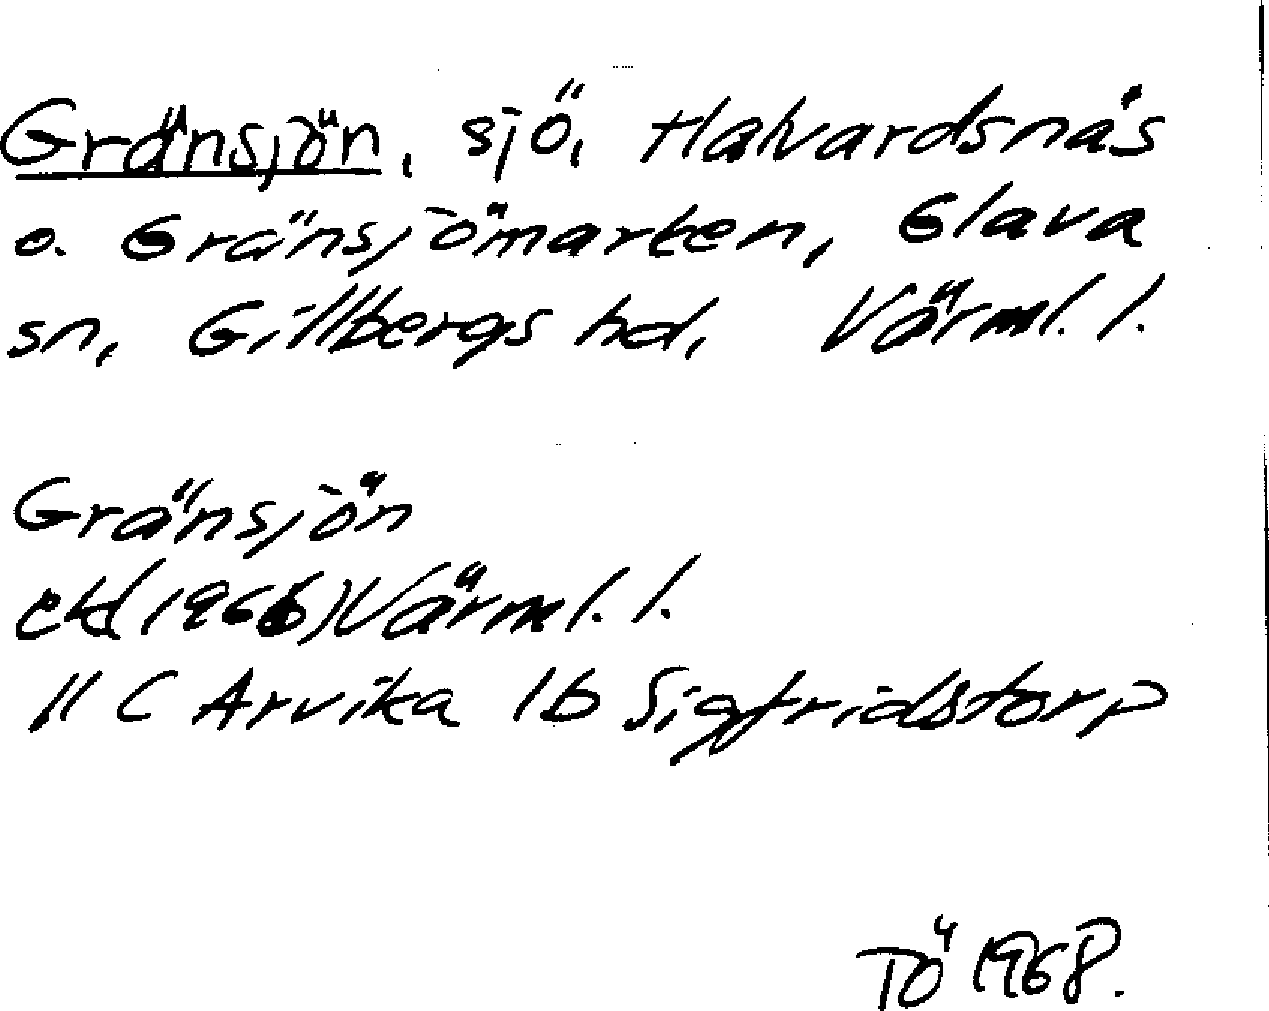 Gränsjön, sjö, Halvardsnäs
o. Gränsjömarken, Glava
sn, Gillbergs hd, Värml. l.
Gränsjön
ekd (1966) Värml. l.
11 C Arvika 1b Sigfridstorp
TÖ 1968.